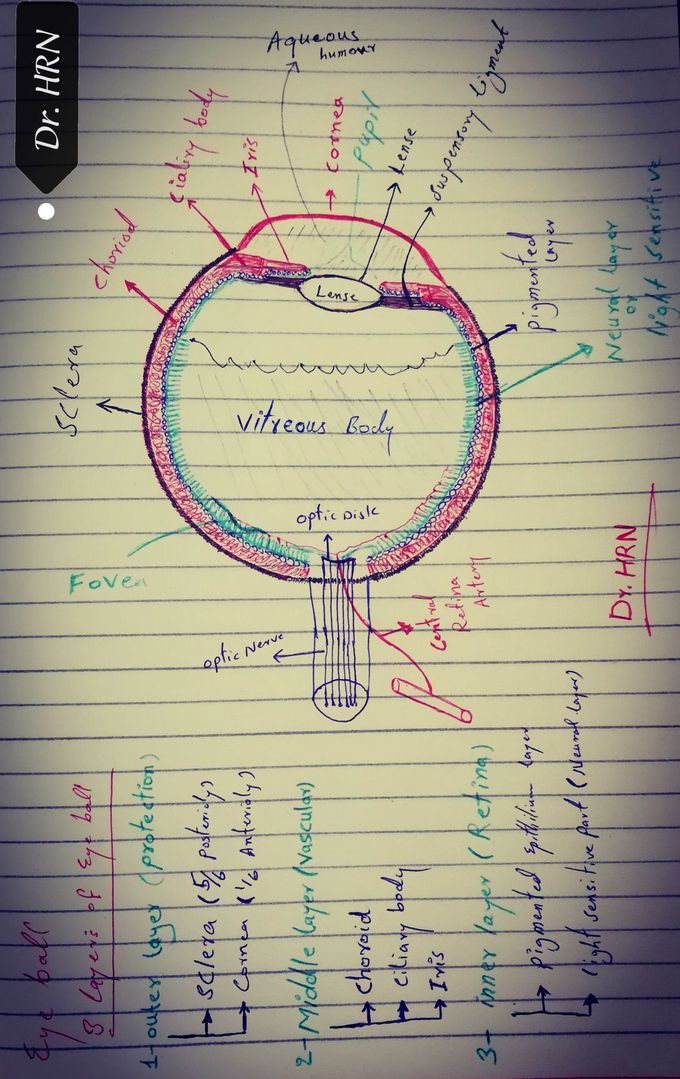 Dr. HRN
Eye ball
3 Layers of Eye ball
1- outer layer (protection)
Sclera (5/6 Posteriorly)
Cornea (1/6 Anteriorly)
2- Middle layer (Vascular)
Choroid
Ciliary body
Iris
3- inner layer (Retina)
Pigmented Epithilium layer
light sensitive part (Neural layer)
Aqueous
humour
Cornea
Pupil
Lense
Suspensory ligment
Iris
Cialiry body
Choriod
Sclera
Lense
Pigmented
layer
Neural layer
or
light sensitive
Vitreous Body
Optic Disk
Fovea
optic Nerve
Central
Retina
Artery
Dr. HRN